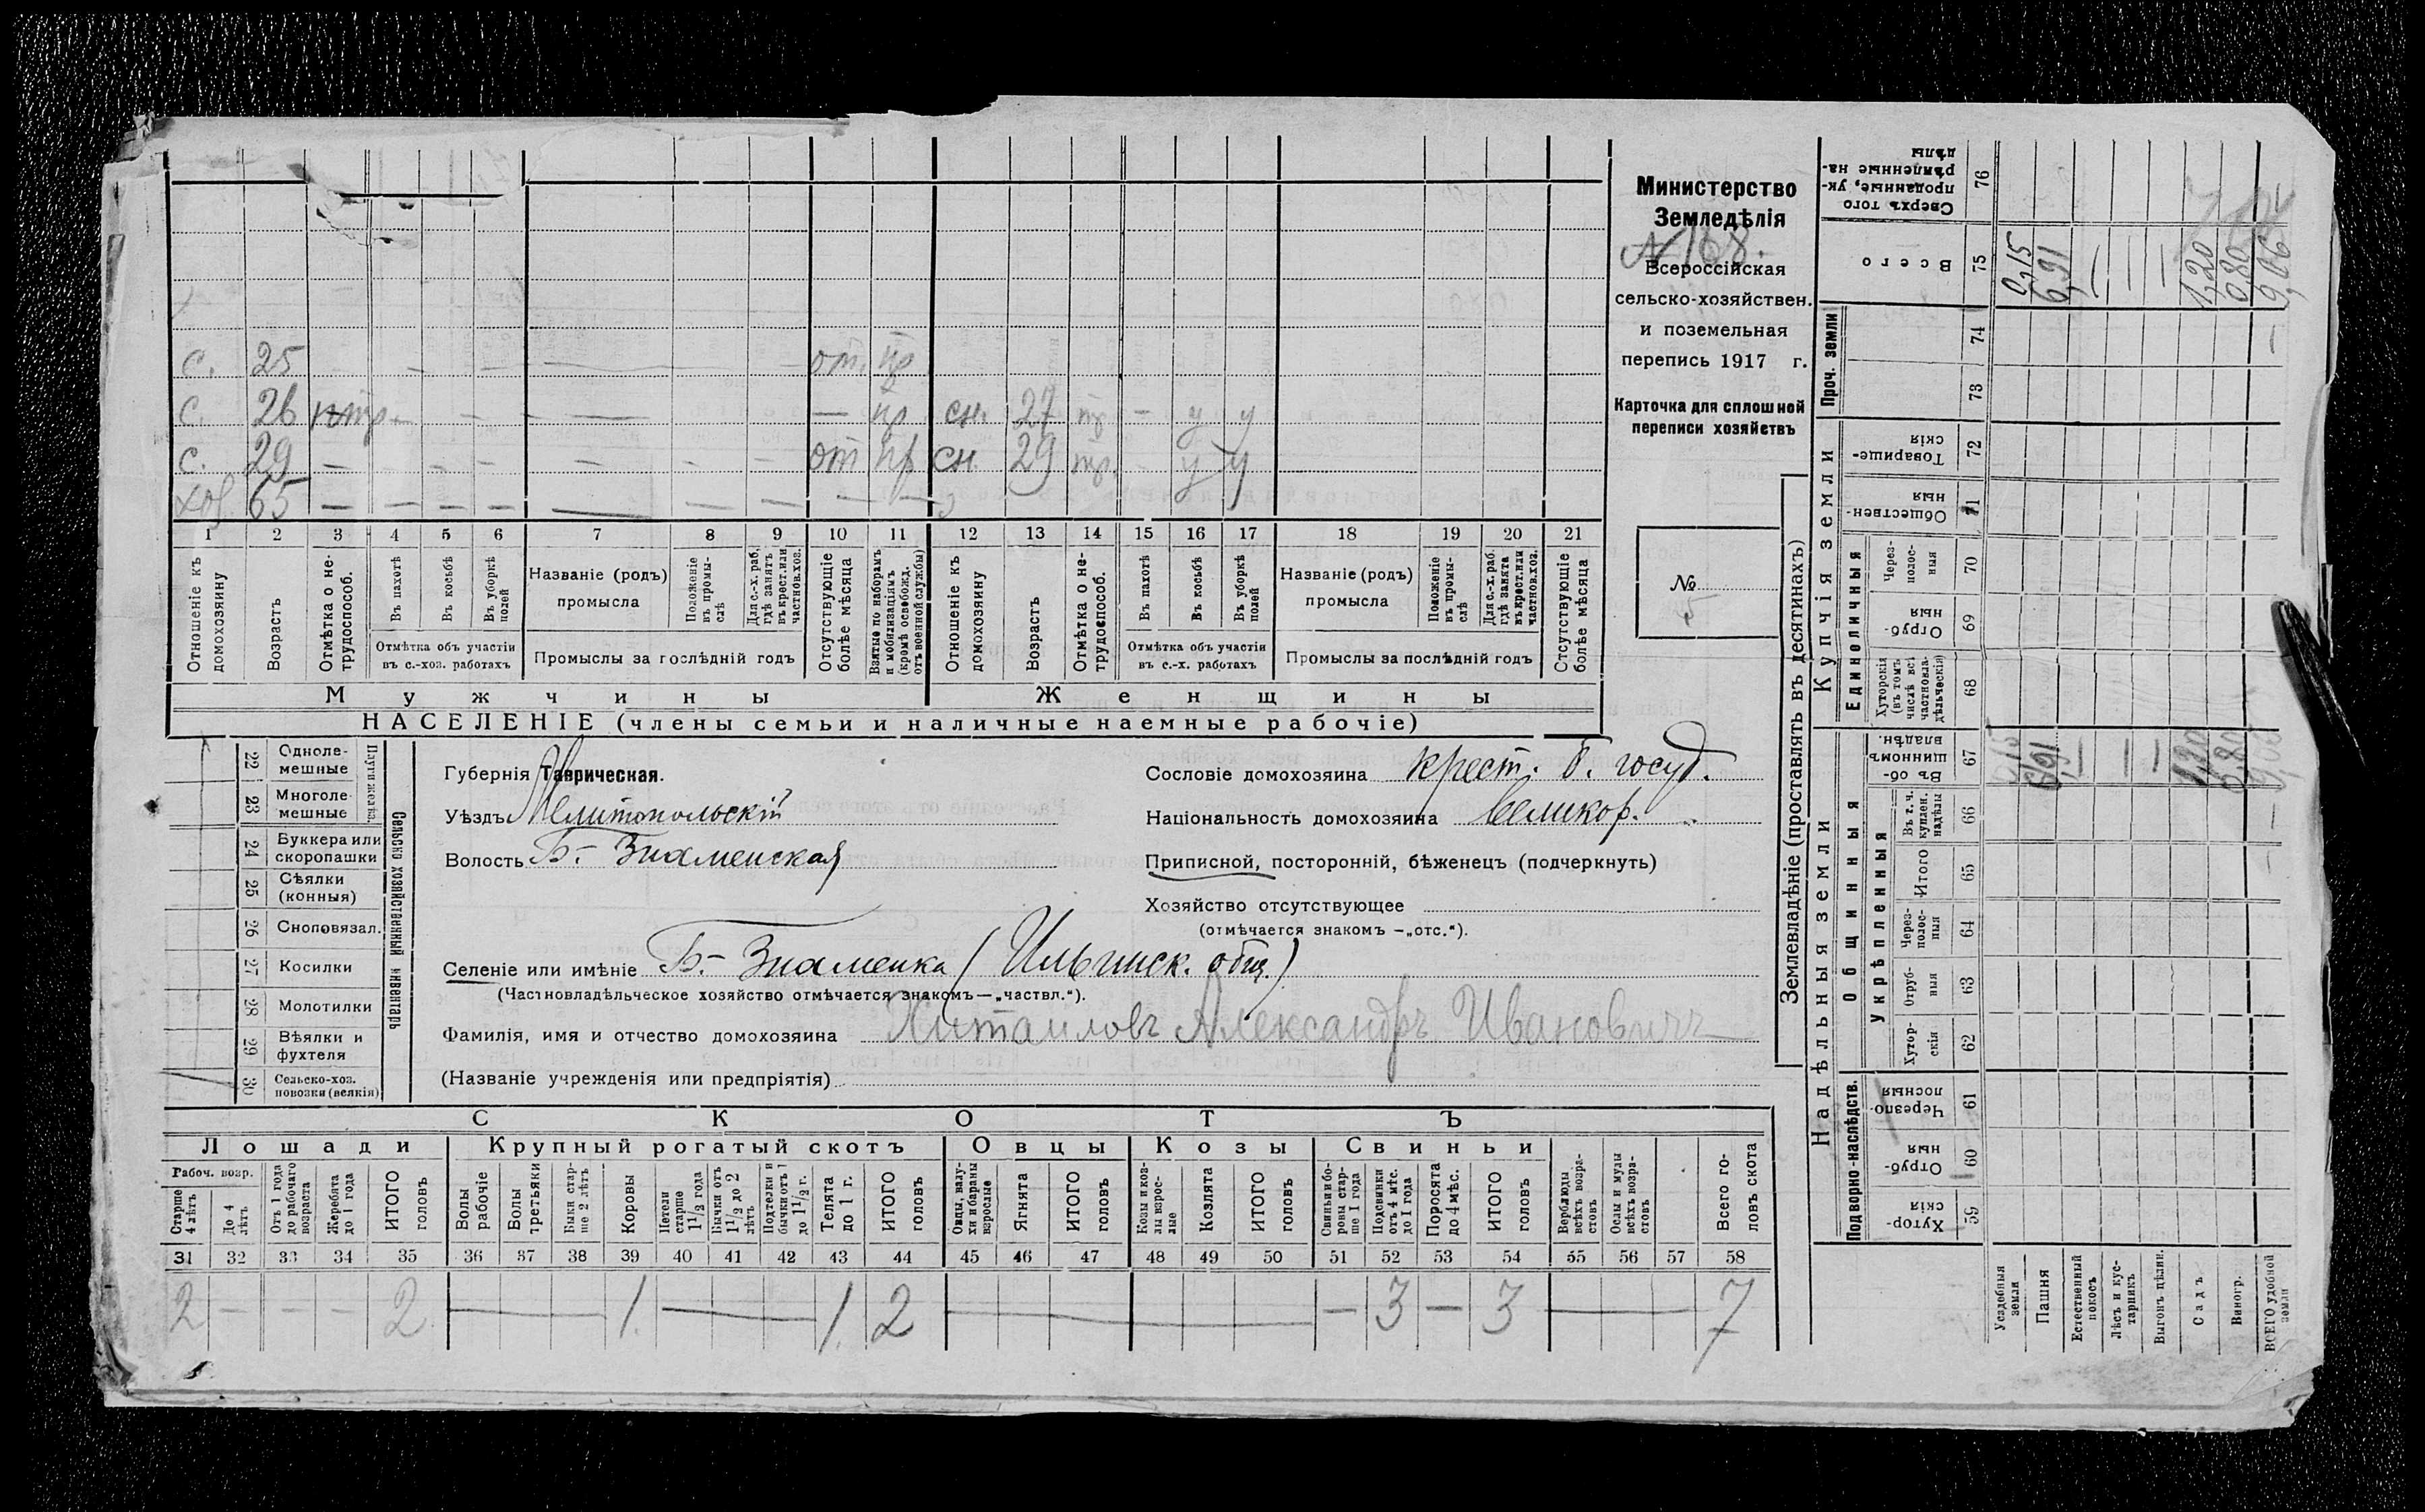 Министерство
Земледѣлія
№ 168.
Всероссійская
сельско-хозяйствен.
и поземельная
перепись 1917 г.
Карточка для сплошной
переписи хозяйствъ
№
с. 25 — — — — — — от. пр
с. 26 — — — — — — пр. сн. 27 — у у
с. 29 — — — — — — — от пр сн. 29 — у у
хоз 65 — — — — — — — — —
1 2 3 4 5 6 7 8 9 10 11 12 13 14 15 16 17 18 19 20 21
Отношеніе къ домохозяину
Возрастъ
Отмѣтка о не-трудоспособ.
Въ пахотѣ
Въ косьбѣ
Въ уборкѣ полей
Отмѣтка объ участіи въ с.-хоз. работахъ
Названіе (родъ) промысла
Положеніе въ промы-слѣ
Для с.-х. раб. гдѣ занятъ въ крест. или частнов. хоз.
Промыслы за послѣдній годъ
Отсутствующіе болѣе мѣсяца
Взятые по наборамъ и мобилизаціямъ (кромѣ освобожд. отъ военной службы)
Отношеніе къ домохозяину
Возрастъ
Отмѣтка о не-трудоспособ.
Въ пахотѣ
Въ косьбѣ
Въ уборкѣ полей
Отмѣтка объ участіи въ с.-х. работахъ
Названіе (родъ) промысла
Положеніе въ промы-слѣ
Для с.-х. раб. гдѣ занята въ крест. или частнов. хоз.
Промыслы за послѣдній годъ
Отсутствующіе болѣе мѣсяца
Мужчины Женщины
НАСЕЛЕНІЕ (члены семьи и наличные наемные рабочіе)
Сельско хозяйственный инвентарь
Плуги желѣз.
22 Одноле-мешные
23 Многоле-мешные
24 Буккера или скоропашки
25 Сѣялки (конныя)
26 Сноповязал.
27 Косилки
28 Молотилки
29 Вѣялки и фухтеля
30 Сельско-хоз. повозки (всякія)
Губернія Таврическая.
Уѣздъ Мелитопольскій
Волость Б.- Знаменская
Сословіе домохозяина крест. б. госуд.
Національность домохозяина великор.
Приписной, посторонній, бѣженецъ (подчеркнуть)
Хозяйство отсутствующее
(отмѣчается знакомъ —„отс.“).
Селеніе или имѣніе Б.- Знаменка (Ильинск. общ.)
(Частновладѣльческое хозяйство отмѣчается знакомъ—„частвл.“).
Фамилія, имя и отчество домохозяина Александръ Ивановичъ
(Названіе учрежденія или предпріятія)
СКОТЪ
Лошади Крупный рогатый скотъ Овцы Козы Свиньи
Рабоч. возр.
Старше 4 лѣтъ
До 4 лѣтъ
Отъ 1 года до рабочаго возраста
Жеребята до 1 года
ИТОГО головъ
Волы рабочіе
Волы третьяки
Быки стар-ше 2 лѣтъ
Коровы
Нетели старше 1 1/2 года
Бычки отъ 1 1/2 до 2 лѣтъ
Подтелки и бычки отъ 1 до 1 1/2 г.
Телята до 1 г.
ИТОГО головъ
Овцы, валу-хи и бараны взрослые
Ягнята
ИТОГО головъ
Козы и коз-лы взрос-лые
Козлята
ИТОГО головъ
Свиньи и бо-ровы стар-ше 1 года
Подсвинки отъ 4 мѣс. до 1 года
Поросята до 4 мѣс.
ИТОГО головъ
Верблюды всѣхъ возра-стовъ
Ослы и мулы всѣхъ возра-стовъ
Всего го-ловъ скота
31 32 33 34 35 36 37 38 39 40 41 42 43 44 45 46 47 48 49 50 51 52 53 54 55 56 57 58
2 — — — 2 — 1. — 1. 2 — — 3 — 3 — 7
Землевладѣніе (проставлять въ десятинахъ)
Надѣльныя земли Купчія земли Проч. земли
Подворно-наслѣдств.
Общинныя
Укрѣпленныя
Единоличныя
Хутор-скія 59
Отруб-ныя 60
Черезпо-лосныя 61
Хутор-скія 62
Отруб-ныя 63
Через-полос-ныя 64
Итого 65
Въ т. ч. куплен. надѣлы 66
Въ об-щинномъ владѣн. 67
Хуторскія (въ томъ числѣ всѣ частновла-дѣльческія) 68
Отруб-ныя 69
Через-полос-ныя 70
Обществен-ныя 71
Товарище-скія 72
73
74
Всего 75
Сверхъ того проданные, ук-рѣпленные на-дѣлы 76
Усадебныя земли 0,15 0,15
Пашня 6,91 6,91
Естественный покосъ
Лѣсъ и кус-тарникъ
Выгонъ цѣлин.
Садъ 1,20 1,20
Виногр. 0,80 0,80
ВСЕГО удобной земли 9,06 9,06